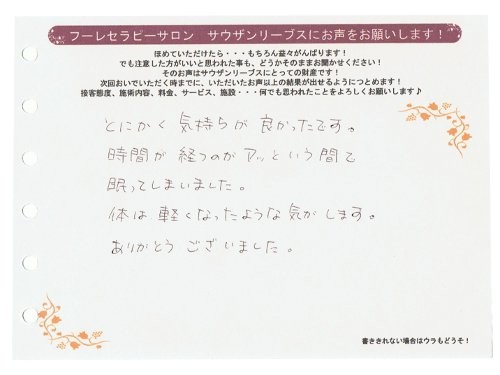 フーレセラピーサロン　サウザンリーブスにお声をお願いします！
ほめていただけたら・・・もちろん益々がんばります！
でも注意した方がいいと思われた事も、どうかそのままお聞かせください！
そのお声はサウザンリーブスにとっての財産です！
次回おいでいただく時までに、いただいたお声以上の結果が出せるようにつとめます！
接客態度、施術内容、料金、サービス、施設・・・何でも思われたことをよろしくお願いします♪
とにかく 気持ちが 良かったです。
時間が 経つのが アッという間で
眠ってしまいました。
体は 軽くなったような気がします。
ありがとう ございました。
書ききれない場合はウラもどうぞ！